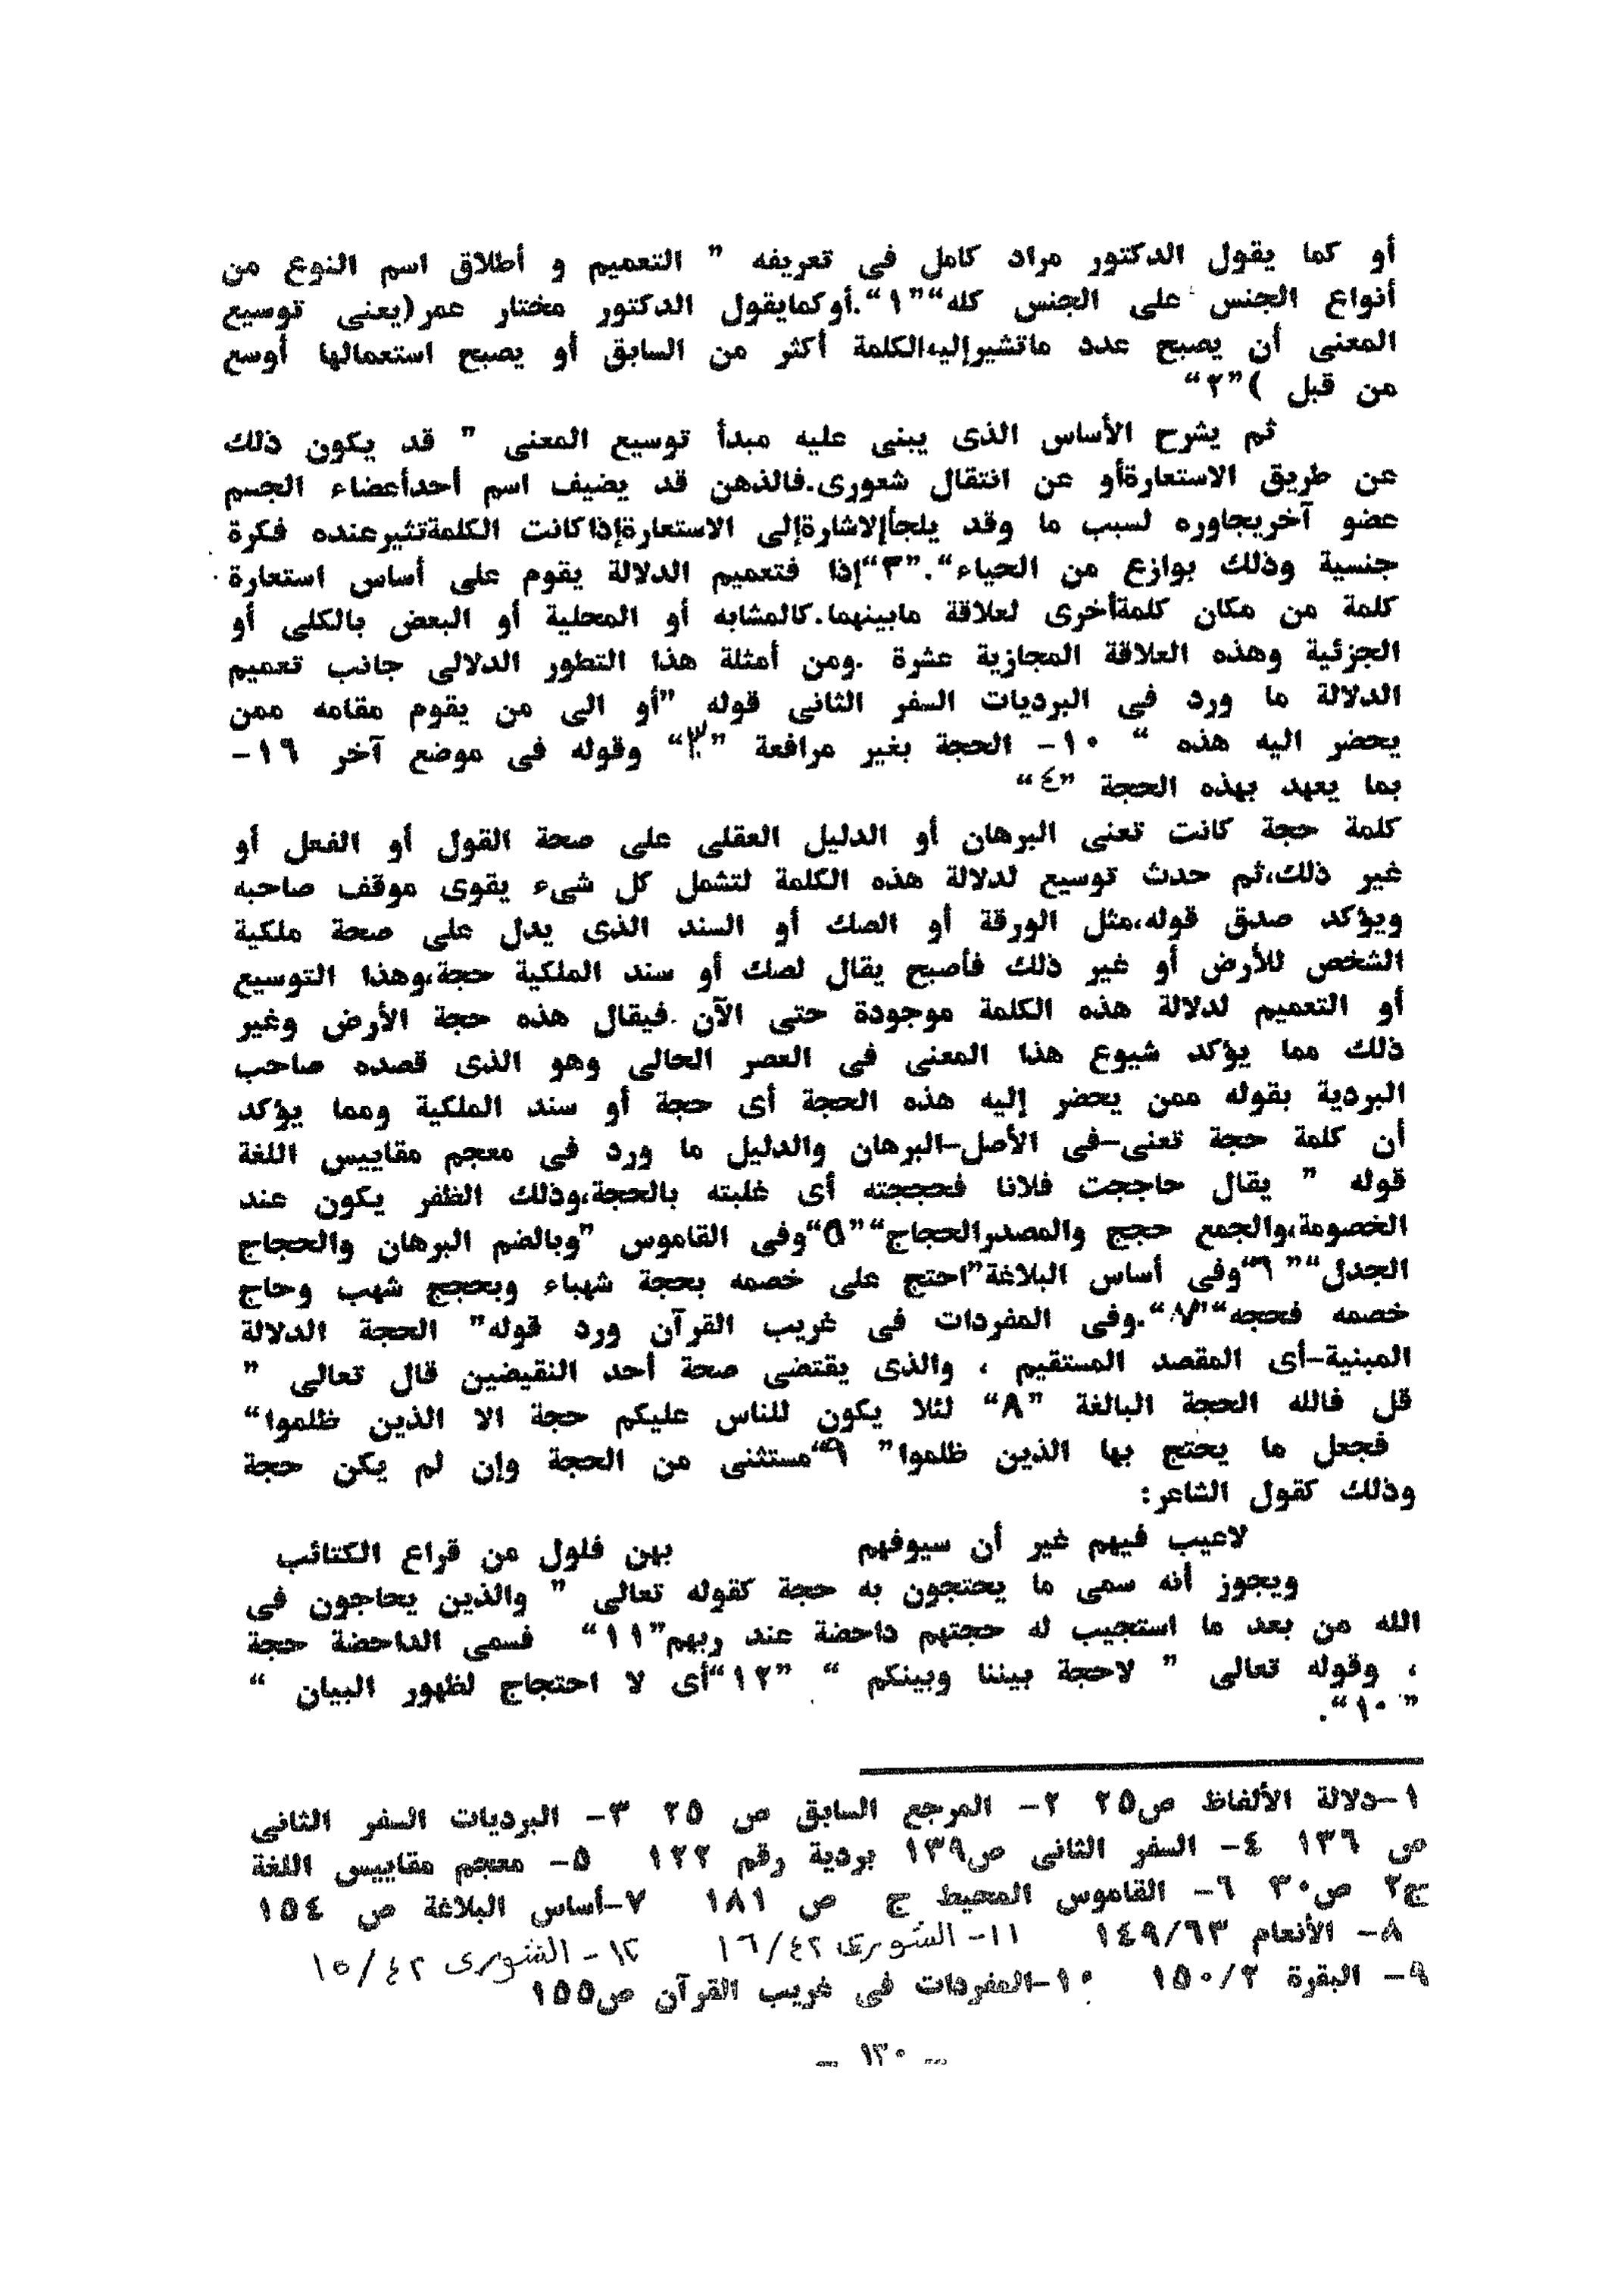 أو كما يقول الدكتور مراد كامل فى تعريفه " التعميم و أطلاق اسم النوع من
أنواع الجنس على الجنس كله""١".أوكمايقول الدكتور مختار عمر(يعنى توسيع
المعنى أن يصبح عدد ماتشيرإليهالكلمة أكثر من السابق أو يصبح استعمالها أوسع
من قبل )"٢"
ثم يشرح الأساس الذى يبنى عليه مبدأ توسيع المعنى " قد يكون ذلك
عن طريق الاستعارةأو عن انتقال شعورى.فالذهن قد يضيف اسم أحدأعضاء الجسم
عضو آخريجاوره لسبب ما وقد يلجأإلاشارةإلى الاستعارةإذاكانت الكلمةتثيرعنده فكرة
جنسية وذلك بوازع من الحياء"."٣"إذا فتعميم الدلالة يقوم على أساس استعارة
كلمة من مكان كلمةأخرى لعلاقة مابينهما.كالمشابه أو المحلية أو البعض بالكلى أو
الجزئية وهذه العلاقة المجازية عشرة .ومن أمثلة هذا التطور الدلالى جانب تعميم
الدلالة ما ورد فى البرديات السفر الثانى قوله "أو الى من يقوم مقامه ممن
يحضر اليه هذه " ١٠- الحجة بغير مرافعة "٣" وقوله فى موضع آخر ١٦-
بما يعهد بهذه الحجة "٤"
كلمة حجة كانت تعنى البرهان أو الدليل العقلى على صحة القول أو الفعل أو
غير ذلك،ثم حدث توسيع لدلالة هذه الكلمة لتشمل كل شىء يقوى موقف صاحبه
ويؤكد صدق قوله،مثل الورقة أو الصك أو السند الذى يدل على صحة ملكية
الشخص للأرض أو غير ذلك فأصبح يقال لصك أو سند الملكية حجة،وهذا التوسيع
أو التعميم لدلالة هذه الكلمة موجودة حتى الآن .فيقال هذه حجة الأرض وغير
ذلك مما يؤكد شيوع هذا المعنى فى العصر الحالى وهو الذى قصده صاحب
البردية بقوله ممن يحضر إليه هذه الحجة أى حجة أو سند الملكية ومما يؤكد
أن كلمة حجة تعنى-فى الأصل-البرهان والدليل ما ورد فى معجم مقاييس اللغة
قوله " يقال حاججت فلانا فحججته أى غلبته بالحجة،وذلك الظفر يكون عند
الخصومة،والجمع حجج والمصدرالحجاج""٥"وفى القاموس "وبالضم البرهان والحجاج
الجدل""٦"وفى أساس البلاغة"احتج على خصمه بحجة شهباء وبحجج شهب وحاج
خصمه فحجه""٧".وفى المفردات فى غريب القرآن ورد قوله" الحجة الدلالة
المبنية-أى المقصد المستقيم ، والذى يقتضى صحة أحد النقيضين قال تعالى "
قل فالله الحجة البالغة "٨" لئلا يكون للناس عليكم حجة الا الذين ظلموا"
فجعل ما يحتج بها الذين ظلموا" ٩"مستثنى من الحجة وإن لم يكن حجة
وذلك كقول الشاعر:
لاعيب فيهم غير أن سيوفهم بهن فلول من قراع الكتائب
ويجوز أنه سمى ما يحتجون به حجة كقوله تعالى " والذين يحاجون فى
الله من بعد ما استجيب له حجتهم داحضة عند ربهم"١١" فسمى الداحضة حجة
، وقوله تعالى " لاحجة بيننا وبينكم " "١٢"أى لا احتجاج لظهور البيان "
"١٠".
١-دلالة الألفاظ ص٢٥ ٢- المرجع السابق ص ٢٥ ٣- البرديات السفر الثانى
ص ١٣٦ ٤- السفر الثانى ص١٣٩ بردية رقم ١٢٢ ٥- معجم مقاييس اللغة
ج٢ ص٣٠ ٦- القاموس المحيط ج ص ١٨١ ٧-أساس البلاغة ص ١٥٤
٨- الأنعام ١٤٩/٦٣ ١١- الشورى ١٦/٤٢ ١٢- الشورى ١٥/٤٢
٩- البقرة ١٥٠/٢ ١٠-المفردات فى غريب القرآن ص١٥٥
- ١٣٠ -